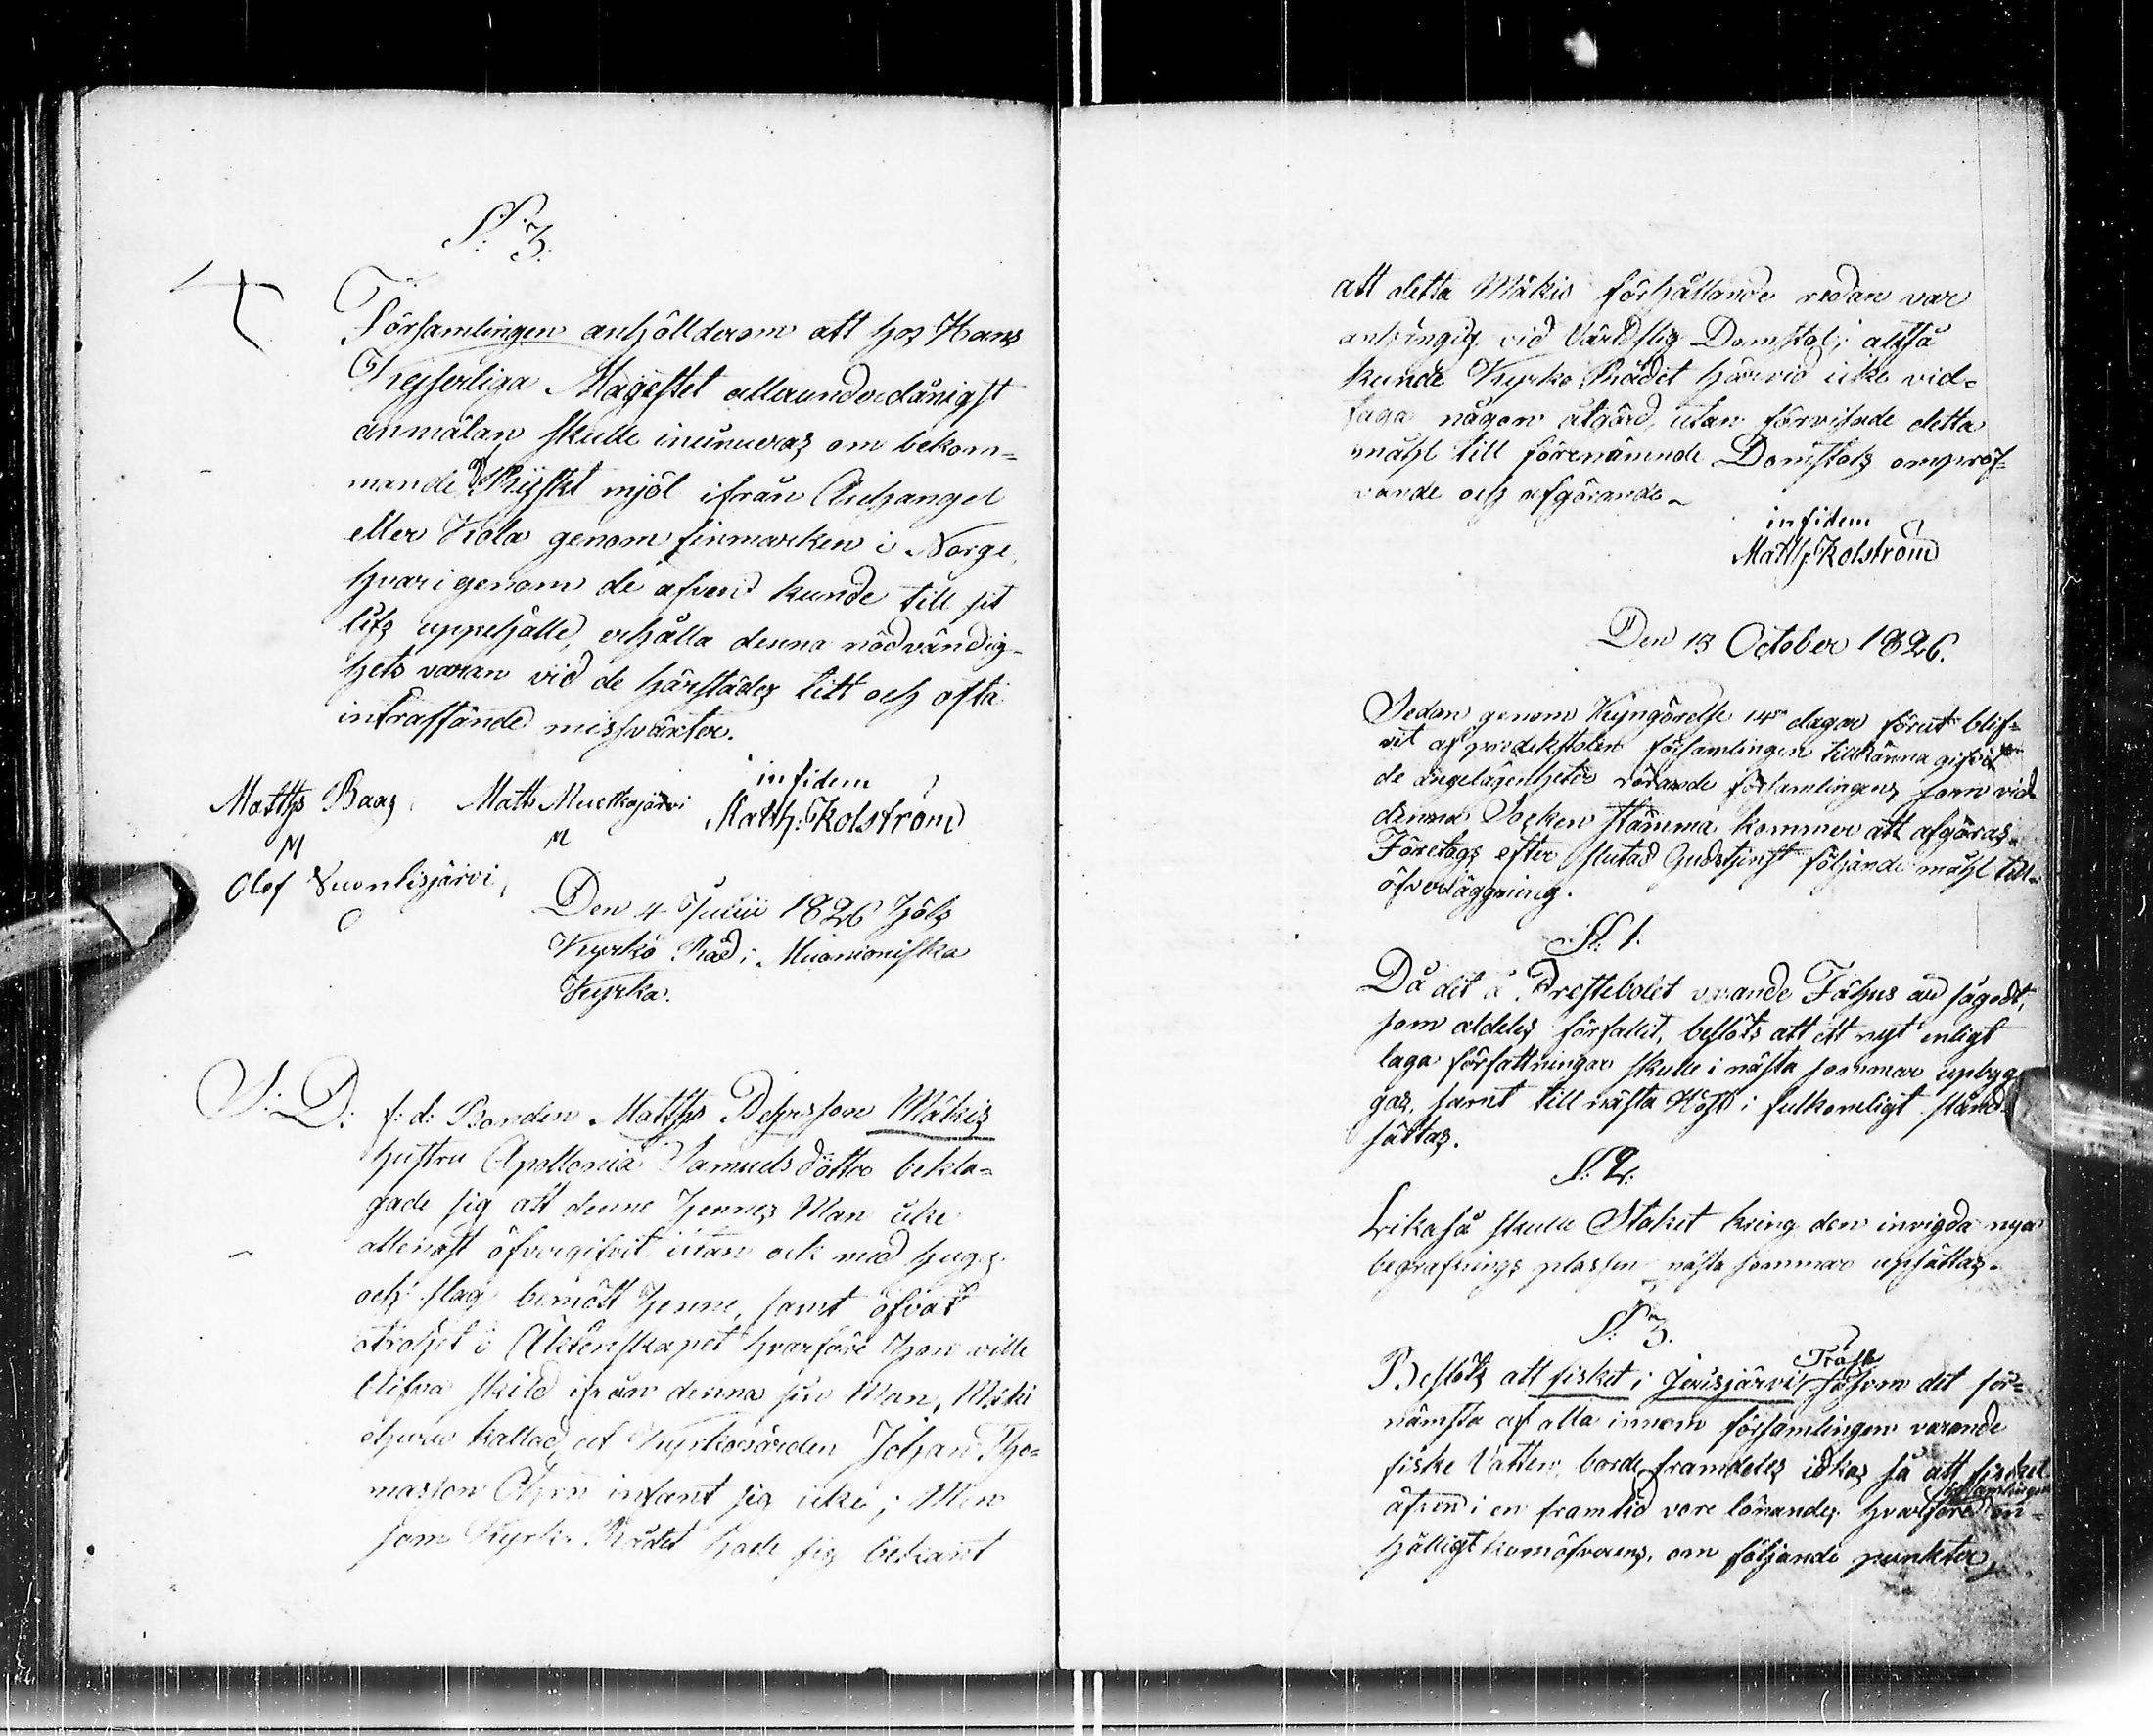 S: 3.
Församlingen anhöllderom att hos Hans
Keyserliga Mayestet allraunderdånigst
anmälan skulle insinueras om bekom=
mande Ryskt mjöl ifrån Archangel
eller Kola genom finmarken i Norge,
hvarigenom de äfven kunde till sit
lifs uppehälle, erhålla denna nödvändig-
hets varan vid de härstädes titt och ofta
inträffande missväxter.
infidem
Matths Baas. Maths Muotkajärvi Matth: Kolström
M M
Olof Vuontisjärvi,
O
Den 4 Julii 1826 höls
Kyrko Råd i Muonioniska
Kyrka.
S: D: f: d: Bonden Matths Pehrsson Mäkis
hustru Apollonia Samuels dotter bekla=
gade sig att denne hennes Man icke
allenast öfvergifvit utan ock med hugg
och slag bemött henne, samt öfvat
otrohet i Äktenskapet hvarföre hon ville
blifva skild ifrån denna sin Man, Mäki
ehuru kallad af Kyrkovärden Johan Tho=
masson infant sig icke; Men
som Kyrko Rådet hade sig bekant
att detta Mäkis förhållande redan var
anhängig vid Verldslig Domstol; altså
kunde Kyrko Rådet härvid icke vid=
taga någon åtgärd, utan förvisade detta
måhl till förenämnde Domstols ompröf=
vande och afgörande.
infidem
Matth: Kolström
Den 13 October 1826.
Sedan genom Kungörelse 14 dagar förut blif=
vit af predikstolen församlingen tillkänna gifvit
de angelägenheter rörande församlingens som vid
denna Socken stämma kommer att afgöras.
Företogs efter slutad Gudstjenst följande måhl till
öfverläggning.
S: 1.
Då det å Prestebolet varande Fähus är sågodt,
som aldeles förfallit, beslöts att ett nyt enligt
laga författningar skulle i nästa sommar upbyg
gas, samt till nästa Höst i fulkomligt stånd
sättas.
S: 2.
Likaså skulle Staket kring den invigda nya
begrafnings platsen nästa sommar upsättas.
S: 3.
Träsk
Beslöts att fisket i Jerisjärvi såsom det för=
nämsta af alla innom församlingen varande
fiske Vatten, borde framdeles idkas så att fisket
församlingen
äfven i en framtid vore lönande, hvarföre en=
hälligt komöfverens, om följande punkter,